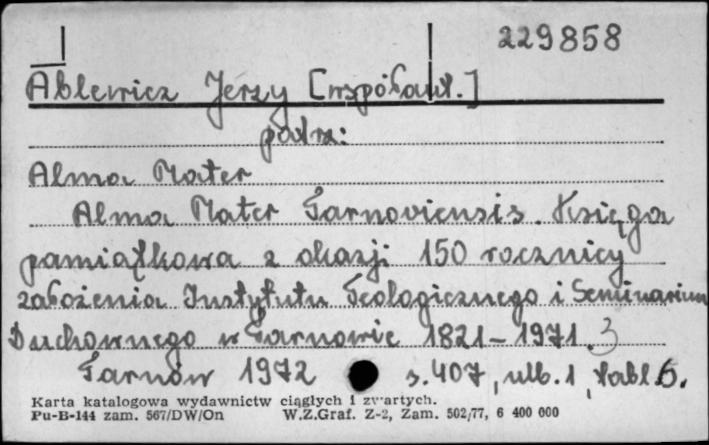 229858
Ablewicz Jerzy [współaut.]
patrz:
Alma Mater
Alma Mater Tarnoviensis. Księga
pamiątkowa z okazji 150 rocznicy
założenia Instytutu Teologicznego i Seminarium
Duchownego w Tarnowie 1821-1971.
Tarnów 1972 s. 407, nlb. 1, tabl. 6.
Karta katalogowa wydawnictw ciągłych i zwartych.
Pu-B-144 zam. 567/DW/On W.Z.Graf. Z-2, Zam. 502/77, 6 400 000